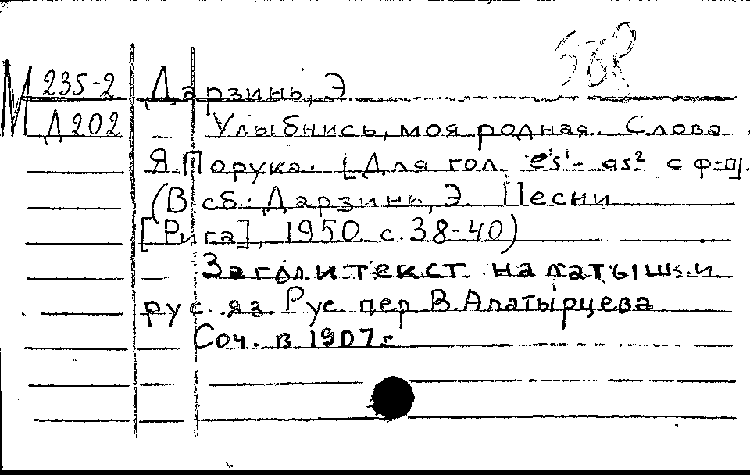 М 235-2 Дарзинь, Э
Д202 Улыбнись, моя родная. Слова
Я. Порука. [Для гол. es¹-as² с ф-п].
(В сб: Дарзинь, Э. Песни
[Рига], 1950 с. 38-40)
Загл и текст на латыш. и
рус. яз. Рус. пер В. Алатырцева
Соч. в 1907 г